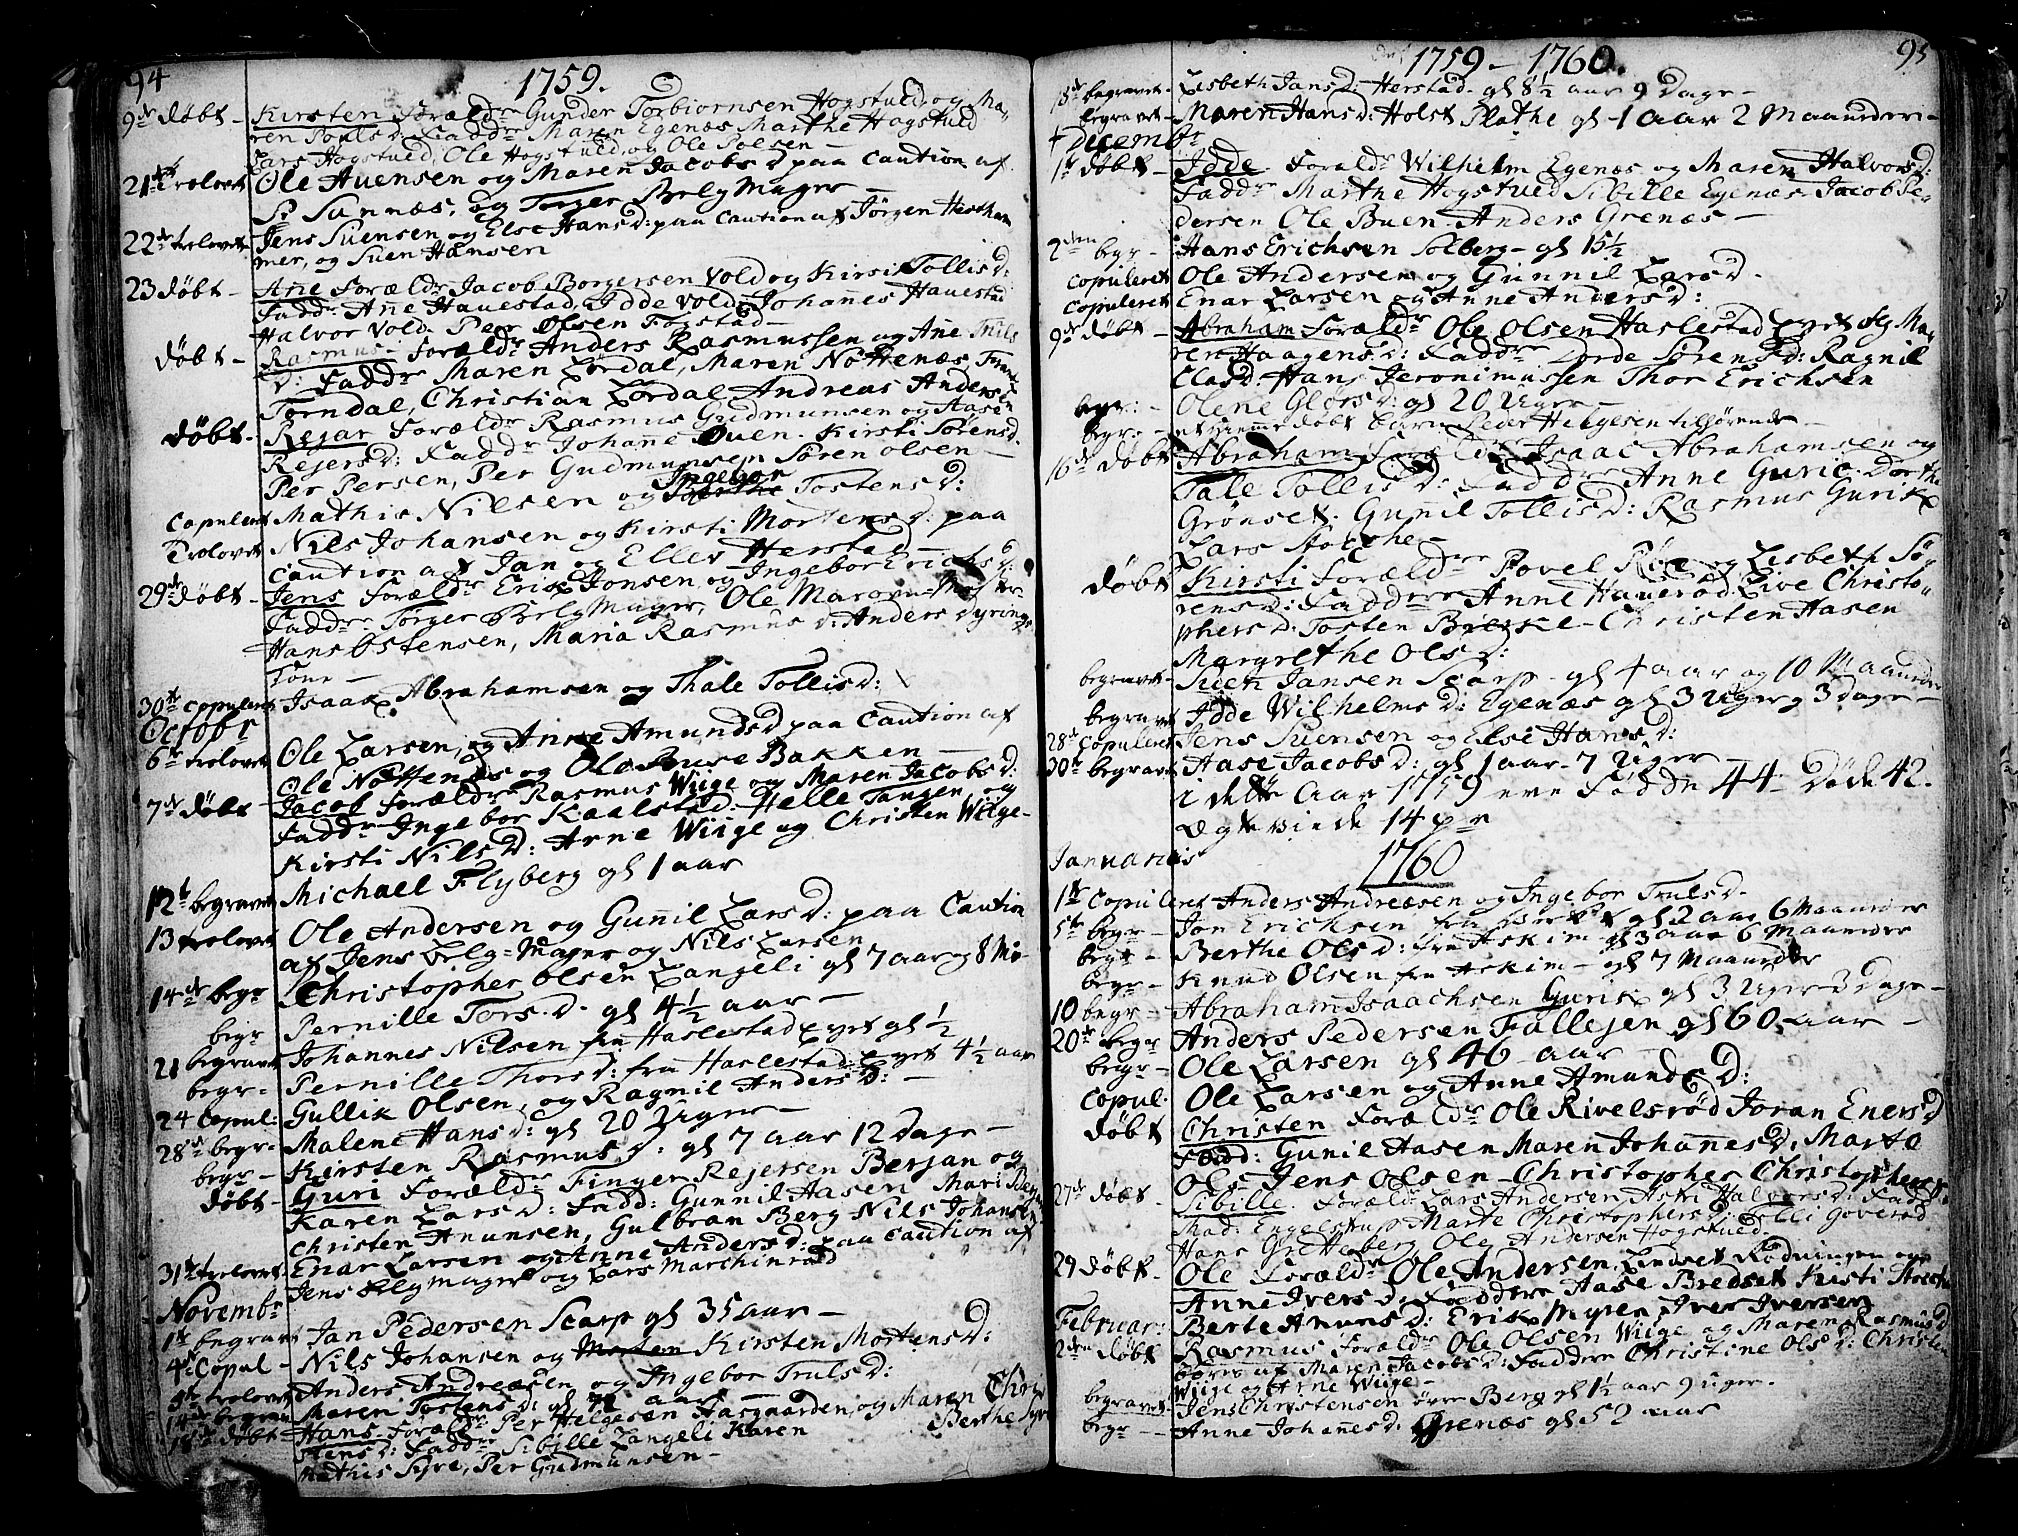 94
1759.
9de døbt - Kirsten Foræld: Gunder Torbiornsen Hogstued og Ma-
ren Pouls D: Fadd: Maren Egenæs Marthe Hogstued
Lars Hogstued, Ole Hogstued og Ole Polsen -
21 trolovet Ole Auensen og Maren Jacobs D paa Caution af
Sannæs, og Torger Belg Mager -
22de trolovet Jens Suensen og Else Hans D: paa Caution af Jørgen Hestham
mer, og Suen Hansen
23 døbt - Ane Foræld: Jacob Borgersen Vold og Kirsti Tollis D:
Fadd: Anne Hauestad, Idde Vold Johannes Hauestad
Halvor Vold. Per Olsen Fogstad -
døbt - Rasmus Foræld: Anders Rasmussen og Ane Truls
D: Fadd: Maren Lørdal, Maren Nøttenæs,
Torndal, Christian Lørdal Andreas Andersen
døbt - Rejar Foræld: Rasmus Gudmunsen og Aase
Rejers D: Fadd: Johanne Buen. Kirsti Sørens D.
Per Persen, Per Gudmunsen Søren Olsen -
Ingebor
Copuleret Mathis Nilsen og Berthe Tostens D:
Trolovet Nils Johansen og Kirsti Mortens D: paa
Caution af Jan og Elles Herstad -
29de døbt - Jens Foræld: Erik Jonsen og Ingebor Erichs D:
Fadd: Torger Belg Mager, Ole
Hans Ostensen, Maria Rasmus D: Anders Dyring
Tone -
30te Copuleret Isaak Abrahamsen og Thale Tollis D:
Octobr
6te trolovet Ole Larsen, og Anne Amunds D paa Caution af
Ole Nøttenæs og Ole Buse Bakken -
7de døbt Jacob Foræld: Rasmus Wiige og Maren Jacobs D:
Fadd: Ingebor Kaalstad: Helle Tangen og
Kirsti Nils D: Arne Wiige og Christen Wiige -
12te begravet Michael Flyberg gl 1 aar
13 trolovet Ole Andersen og Gunnil Lars D: paa Caution
af Jens Belg-Mager og Nils Larsen
14de begr Christopher Olsen Langeli gl 7 aar og 8 Mo-
begr Pernille Tors D. gl 4½ aar -
21 begravet Johannes Nilsen fra Haslestad Eyet gl ½
begr - Pernille Thors D: fra Haslestad: Eyet 4½ aar
24 Copul: Gullik Olsen, og Ragnil Anders D: -
28de begr - Malene Hans D: gl 20 Uger -
begr - Kirsten Rasmus D: gl 7 aar 12 Dage -
døbt - Guri Foræld: Finger Rejersen Berjan og
Karen Lars D: Fadd: Gunnil Aasen Mari
Christen Anunsen, Gulbran Berg Nils Johansen
31te trolovet Enar Larsen og Anne Anders D: paa Caution af
Jens Belg Mager og Lars Marchinrød
Novembr
1te begravet Jan Pedersen Scarp gl 35 aar -
4de Copul - Nils Johansen og Morten Kirsten Mortens D:
trolovet Anders Andreæsen og Ingebor Truls D:
14de begravet Maren Tostens D: gl 72 aar
18de døbt Hans Foræld: Per Helgesen Aasgaarden, og Maren Chri-
stens D: Fadd: Sibille Langeli Karen Berthe Syre
Mathis Syre, Per Gudmunsen -
1759 - 1760. 95
18de begravet - Lisbeth Jans D: Herstad. gl 8½ aar 9 Dage -
begravet - Maren Hans D: Holst Plathe gl 1 aar 2 Maaneder -
Decembr
1te døbt - Idde Foræld: Wilhelm Egenæs og Maren Halvors D:
Fadd: Marthe Hogstued Sibille Egenæs Jacob Pe-
dersen Ole Buen Anders Grenæs -
2den begr - Hans Erichsen Solberg - gl 15½
Copuleret Ole Andersen og Gunnil Lars D -
Copuleret Enar Larsen og Anne Anders D:
9de døbt - Abraham Foræld: Ole Olsen Haslestad Eyet og Ma-
ren Haagens D: Fadd: Dorde Sørens D: Ragnil
Clas D: Hans Jeronimussen Thor Erichsen
begr: - Olene Glors D: gl 20 Uger -
begr - et hiemme døbt Barn Peder Helgesen tilhørende -
16de døbt Abraham Foræld: Isaac Abrahamsen og
Tale Tollis D: Fadd: Anne Gurie. Dorthe
Grønset. Gunil Tollis D: Rasmus Gurik
Lars
døbt Kirsti Foræld: Povel Røe og Lisbeth Sø-
rens D: Fadd: Anne Hauerød: Live Christo-
phers D. Tosten Bricke - Christen Hasen
Margrethe Ols D:
begravet - Suen Jansen Scarp - gl 4 aar og 10 Maaneder
begravet Idde Wilhelms D: Egenæs gl 3 Uger 3 Dage -
28de Copuleret Jens Suensen og Else Hans D:
30te begravet Aase Jacobs D: gl 1 aar 7 Uger -
i dette Aar 1759 ere Fødde 44 - Døde 42.
Ægte Viede 14 par
Januarius 1760
1te Copuleret Anders Andreæsen og Ingebor Truls D -
5te begr - Jon Ericksen fra gl 2 aar 6 Maaneder
begr - Berthe Ols D: fra Askim - gl 3 aar 6 Maaneder
begr - Knud Olsen fra Askim - gl 7 Maaneder
10 begr - Abraham Isaachsen Gurik gl 3 Uger 3 Dage -
20de begr Anders Pedersen Fallejen gl 60 aar -
begr - Ole Larsen gl 46 aar -
Copul: Ole Larsen og Anne Amunds D:
døbt Christen Foræld: Ole Rivelsrød Joran Eners D
Fadd: Gunil Aasen Maren Johannes D. Marta
Ols Jens Olsen Christopher Christophersen
27de døbt Sibille Foræld: Lars Andersen Astri Halvors D: Fadd
Mad: Engelstrup Marte Christophers D: Tolli Goverød
Hans Gretteberg Ole Andersen Hogstued
29 døbt - Ole Foræld: Ole Andersen Lindset Rødningen og
Anne Ivers D: Faddere Aase Bredset Kristi
Berte Anuns D: Erik Myren Iver Iversen
Februar:
2den døbt Rasmus Foræld: Ole Olsen Wiige og Maren Rasmus D
baaret af Maren Jacobs D: Faddere Christine Ols D: Christen
Wiige og Arne Wiige -
begravet - Jens Christensen øvre Berg gl 1½ aar 9 Uger -
begr - Anne Johannes D: Grenæs gl 52 aar